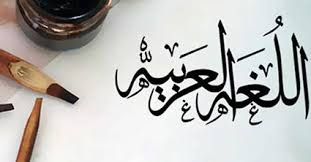 اللغة العربية